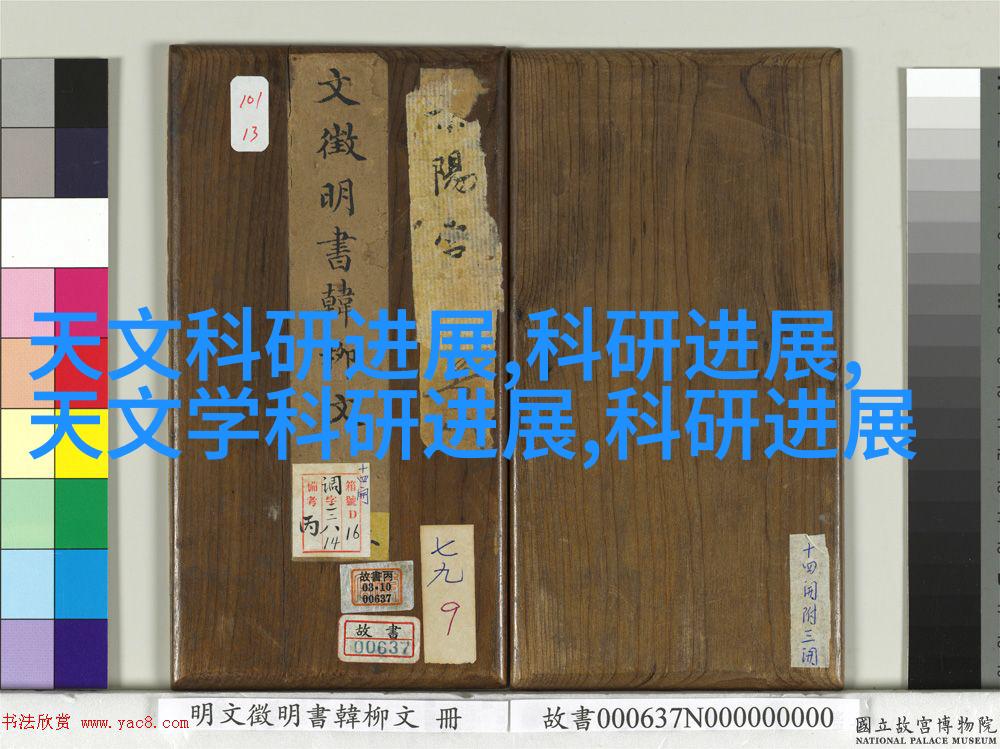 101
13
文徵明書韓柳文
陽宮
天文科研进展,科研进展,
天文学科研进展,科研进展
十四開
箱號D16
調字三八14
備考丙
故書丙
03·10
00637
故書
00637
七九
9
十四開附三開
明文徵明書韓柳文 冊
故書000637N000000000
國立故宮博物院
NATIONAL PALACE MUSEUM
书法欣赏 www.yac8.com